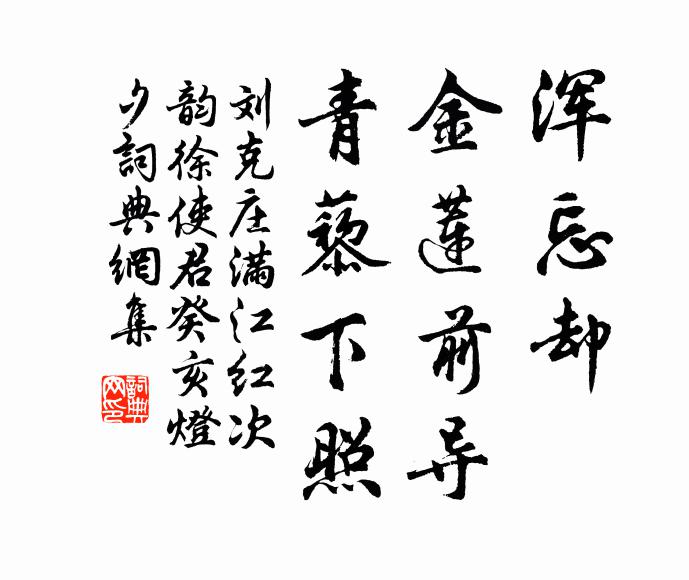 浑忘却
金莲前导
青藜下照
刘克庄满江红次
韵徐使君癸亥燈
夕詞典網集
詞典网印